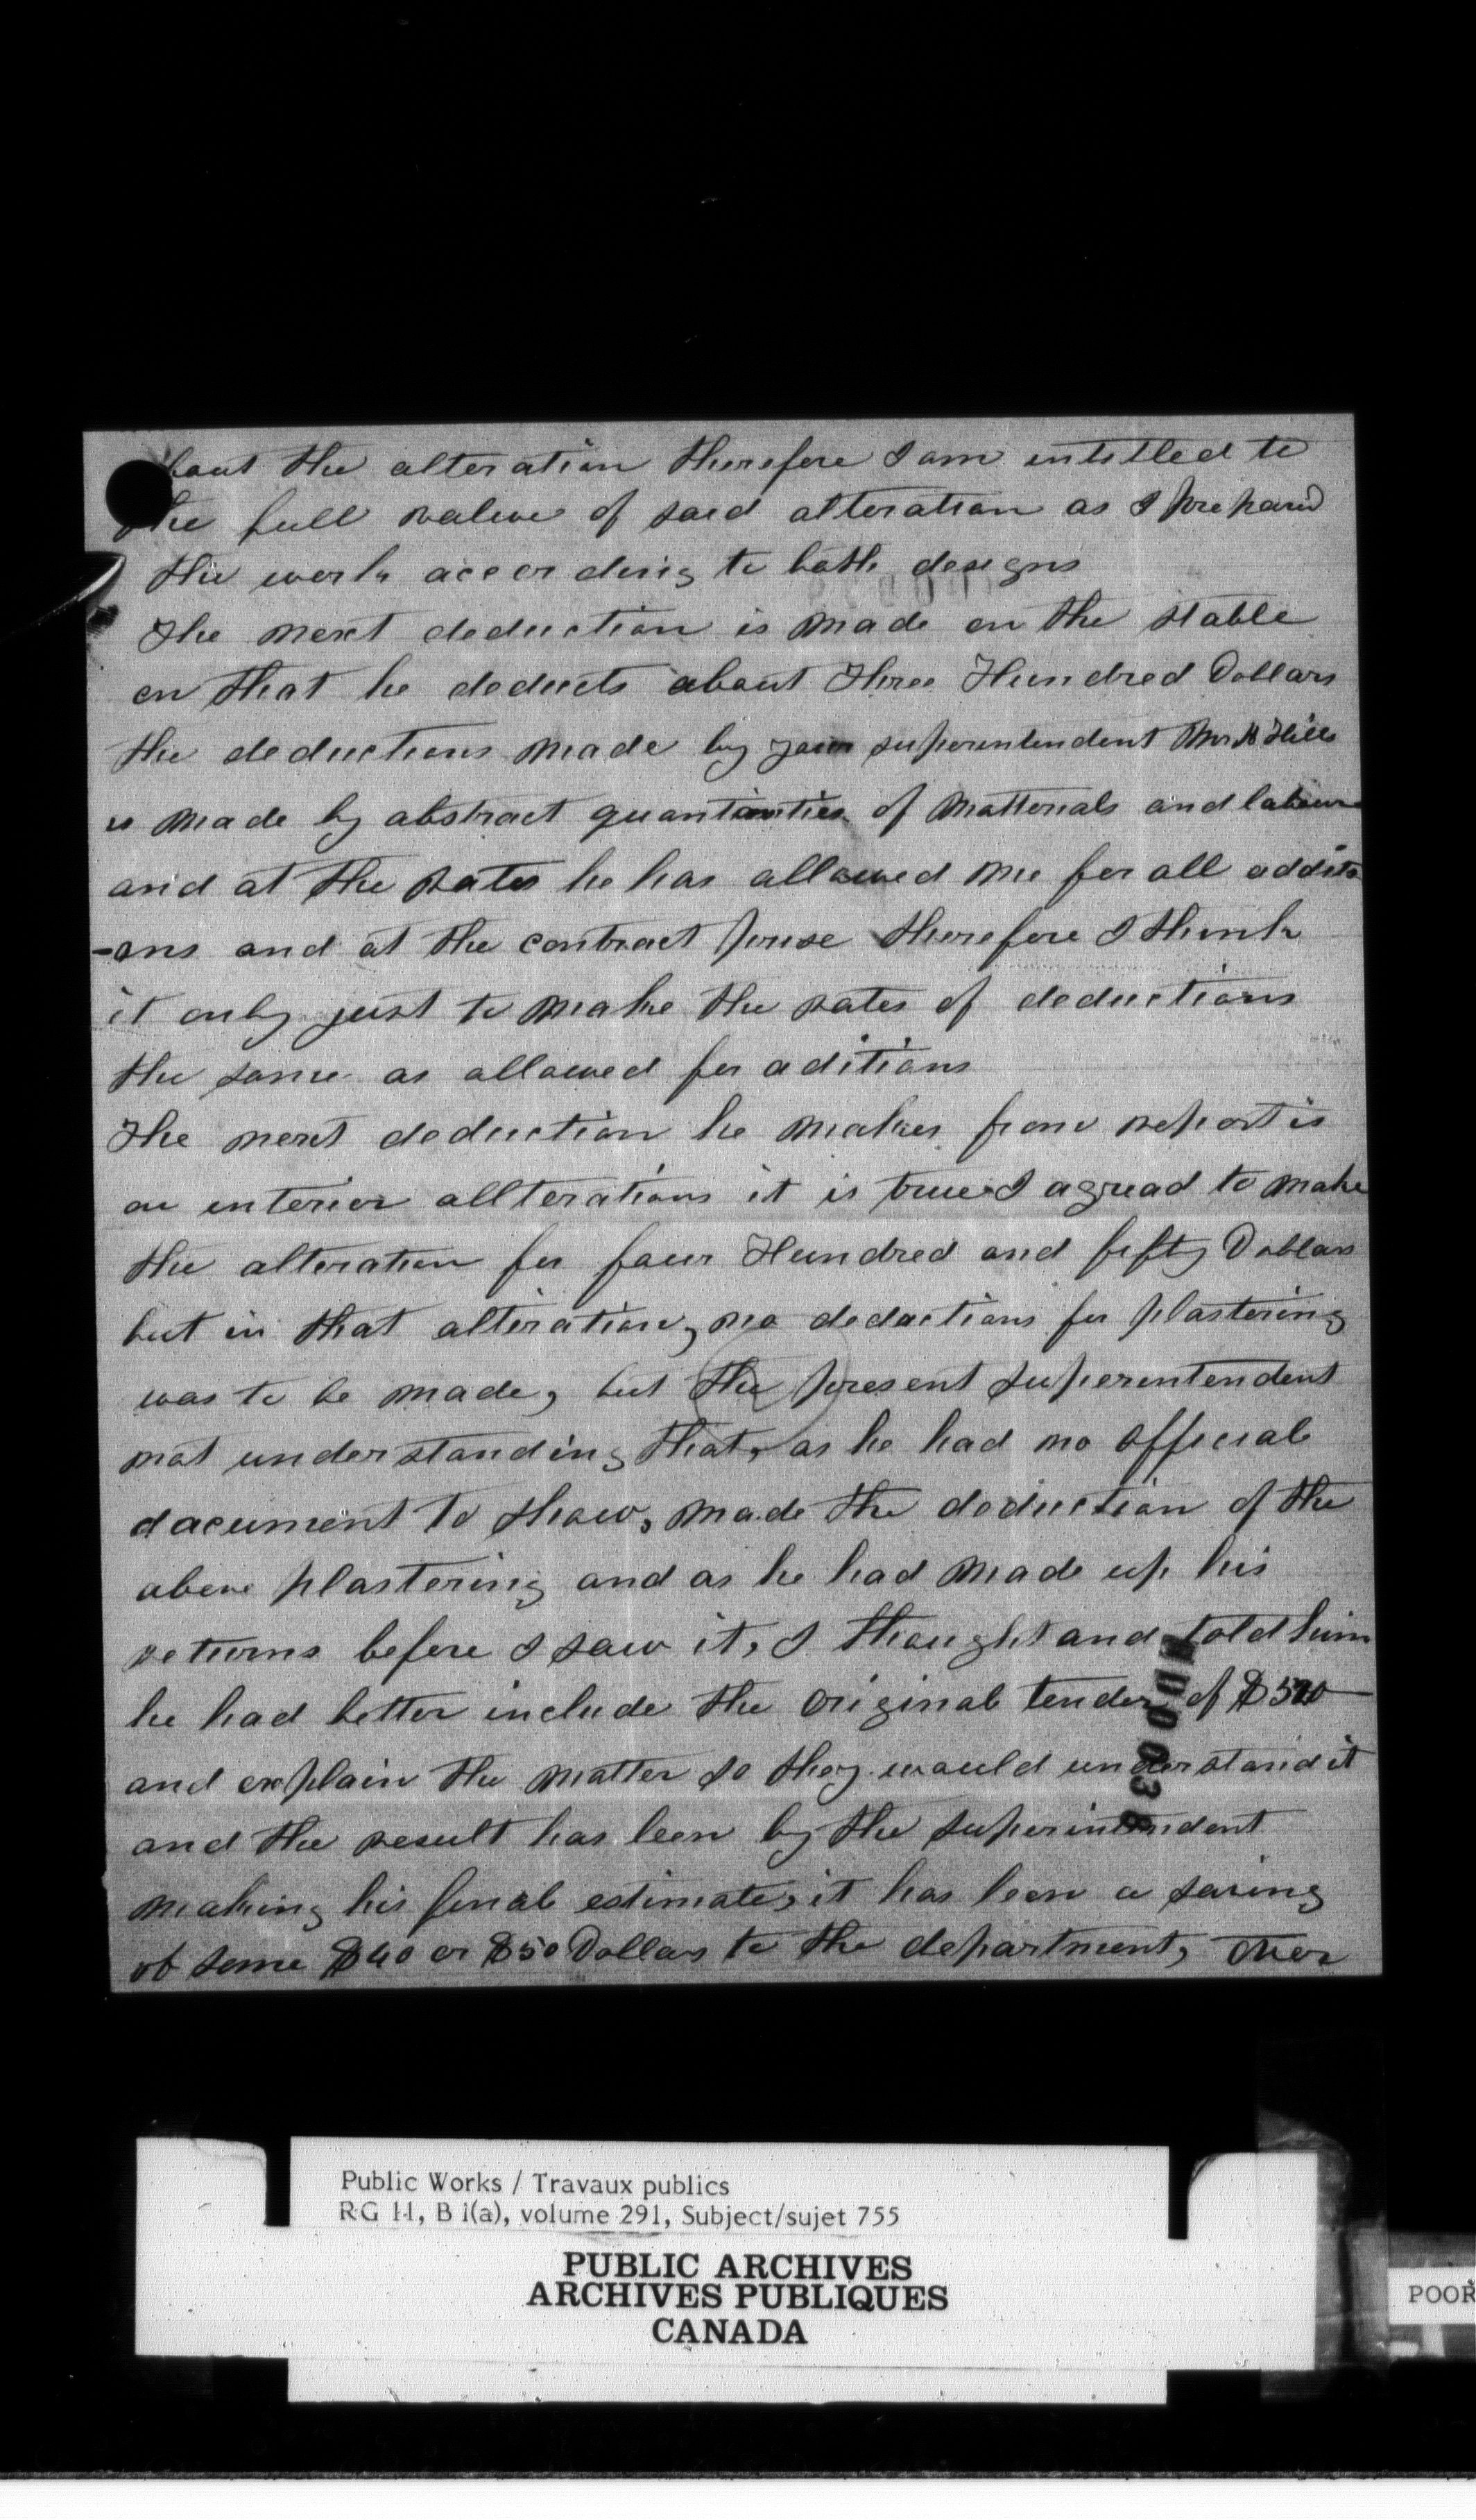 bout the alteration therefore I am intitled to
the full value of said alteration as I prepared
the work according to both designs
The next deduction is made on the stable
on that he deducts about Three Hundred Dollars
the deductions made by your superintendent Mr Hills
is made by abstract quantinties of matterials and labour
and at the rates he has allowed me for all additi
-ons and at the contract prise therefore I think
it only just to make the rates of deductions
the same as allowed for aditions
The next deduction he makes from report is
on interior allterations it is true I agread to make
the alteration for four Hundred and fifty Dollars
but in that alteration, no deductions for plastering
was to be made, but the present superentendent
not understanding that, as he had no official
document to show, made the deduction of the
above plastering and as he had made up his
returns before I saw it, I thought and told him
he had better include the original tender of $500
and explain the matter so they would understand it
and the result has been by the superintendent
making his final estimate, it has been a saving
of some $40 or $50 Dollars to the department, over
Public Works / Travaux publics
RG 11, B 1(a), volume 291, Subject/sujet 755
PUBLIC ARCHIVES
ARCHIVES PUBLIQUES
CANADA
POOR